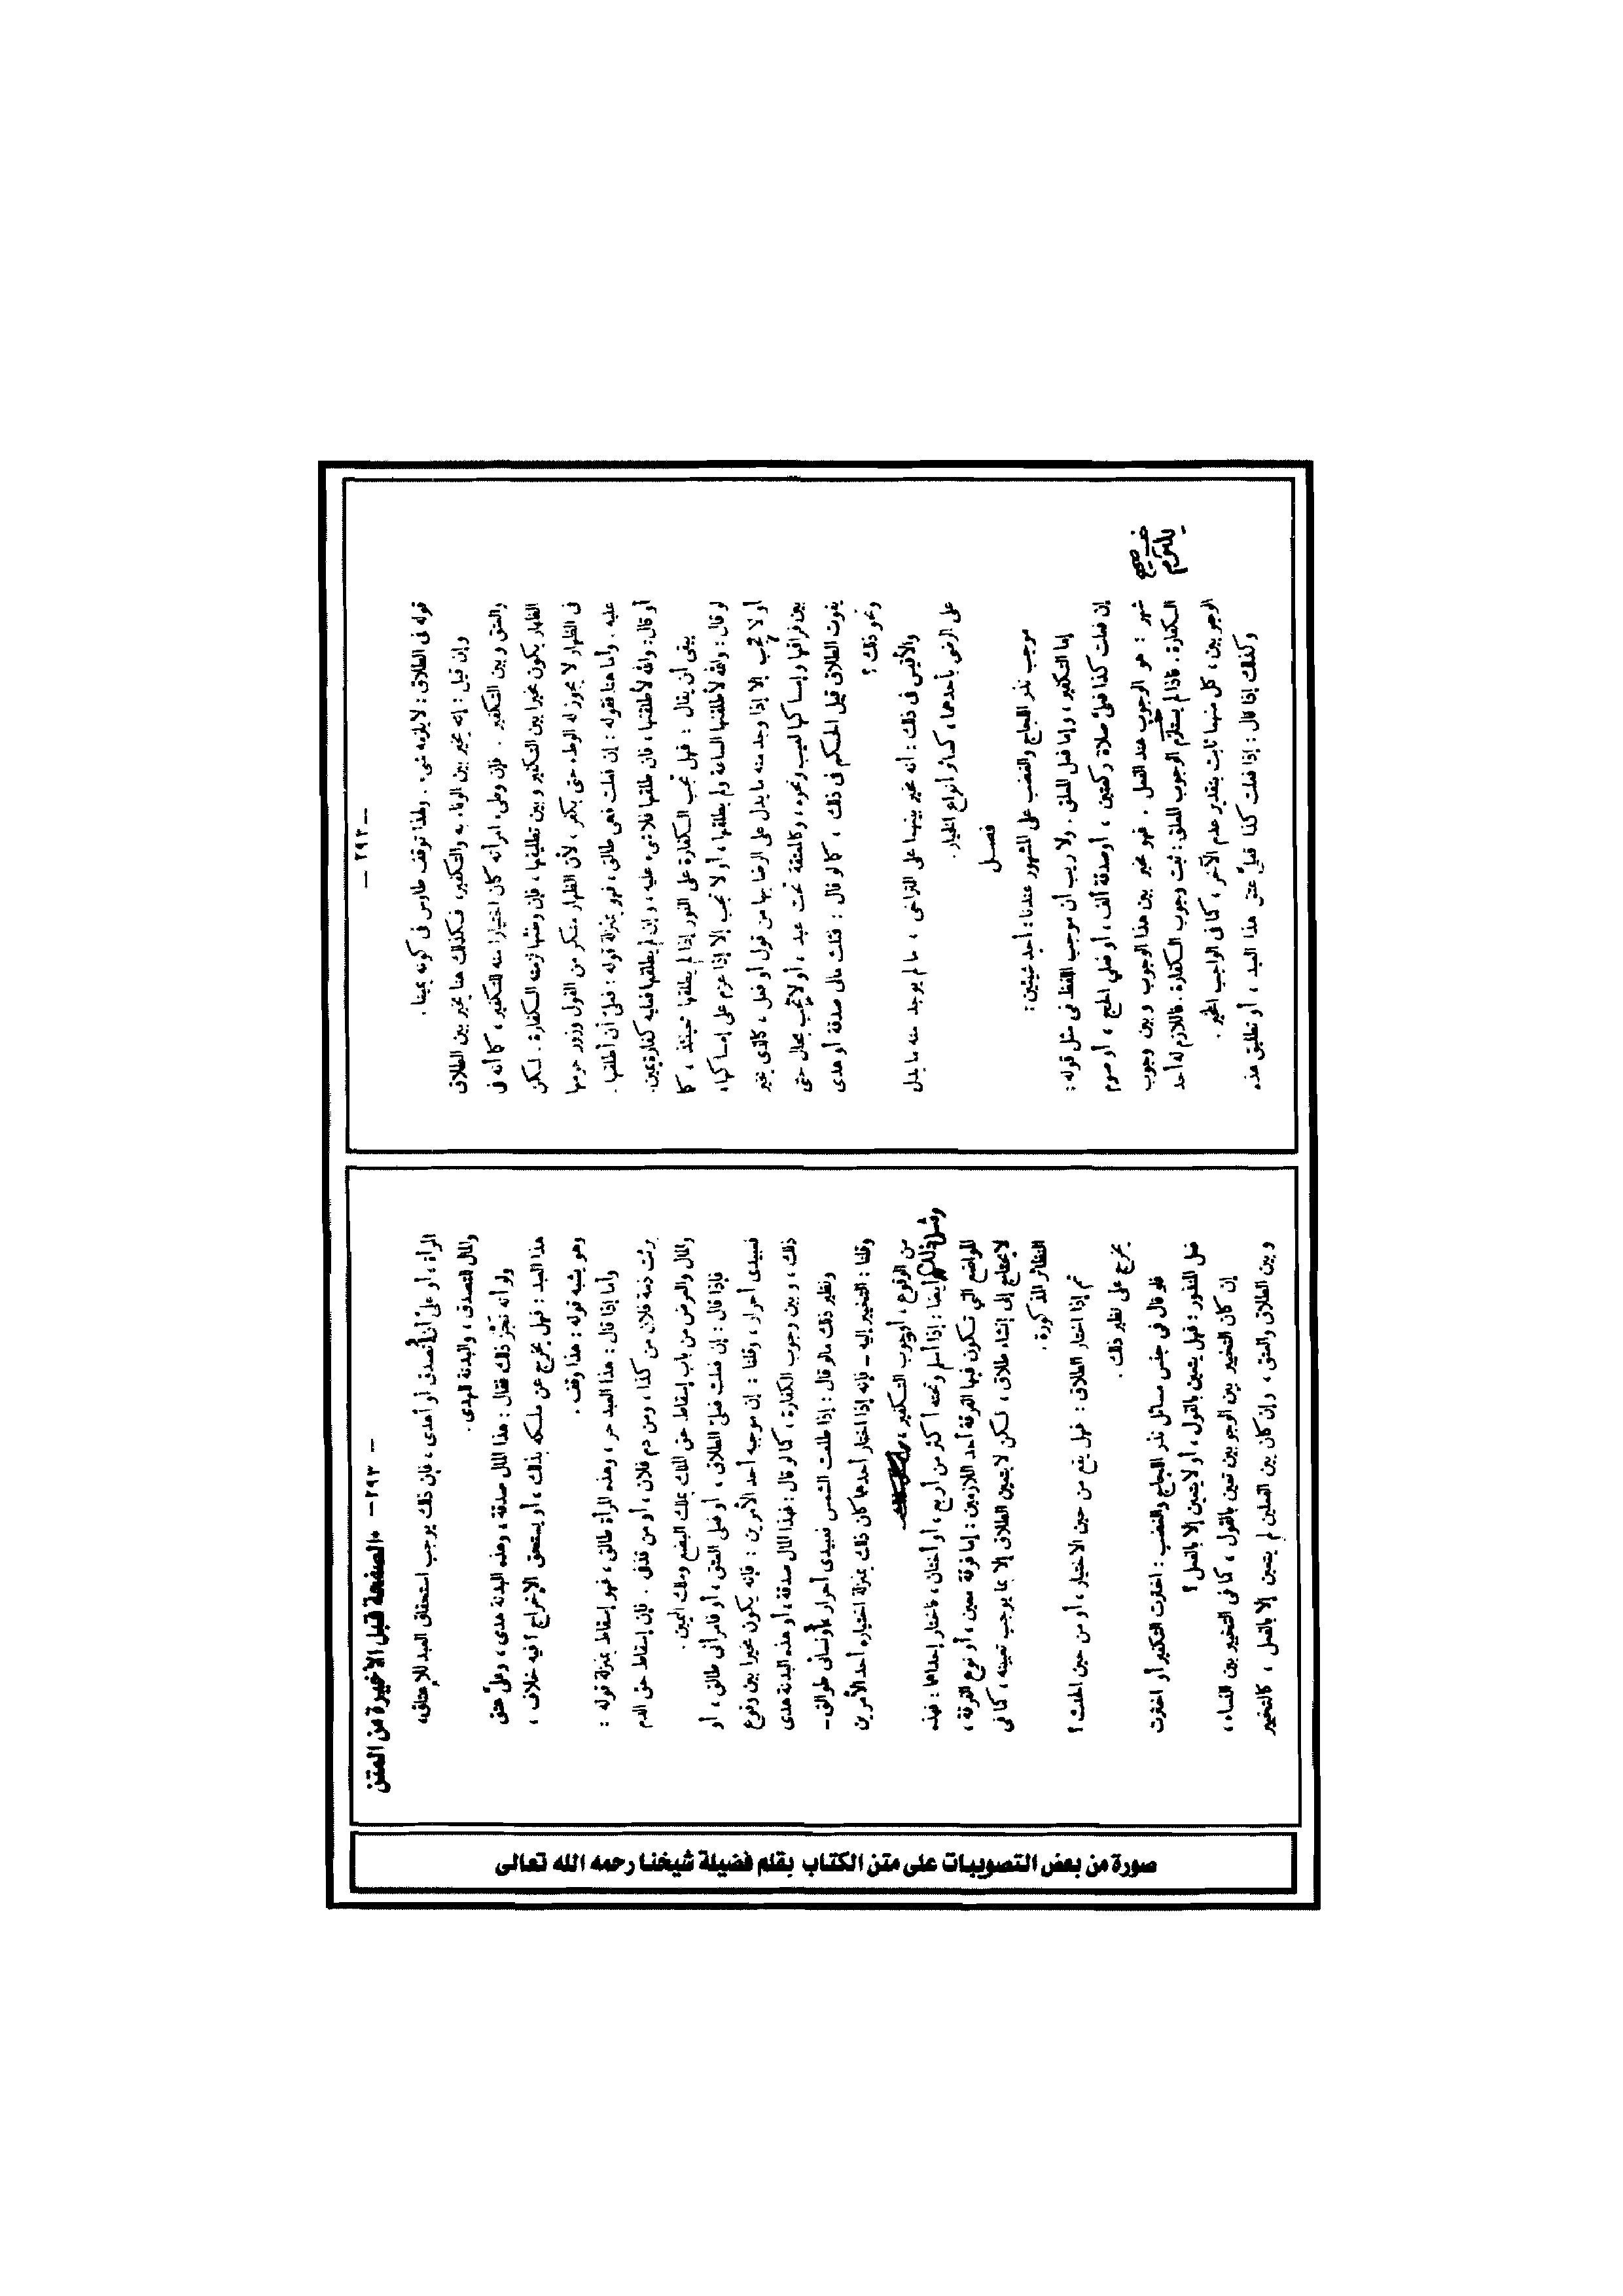 صورة من بعض التصويبات على متن الكتاب بقلم فضيلة شيخنا رحمه الله تعالى
— ٢٩٢ —
قوله فى الطلاق : لا يلزمه شىء . ولهذا توقف طاوس فى كونه يمينا .
وإن قيل : إنه يخير بين الوفاء به والتكفير، فكذلك هنا يخير بين الطلاق
والعتق وبين التكفير . فإن وطىء امرأته كان اختيارا منه للتكفير ، كما أنه فى
الظهار يكون مخيرا بين التكفير وبين تطليقها ، فإن وطئها لزمته الكفارة . لكن
فى الظهار لا يجوز له الوطء حتى يكفر ، لأن الظهار منكر من القول وزور حرمها
عليه . وأما هنا فقوله : إن فعلت فهى طالق ، فهو بمنزلة قوله : فعلىّ أن أطلقها .
أو قال : والله لأطلقنها ، فإن طلقها فلا شىء عليه ، وإن لم يطلقها فعليه كفارة يمين.
يبقى أن يقال : فهل تجب الكفارة على الفور إذا لم يطلقها حينئذ ، كما
لو قال : والله لأطلقنها الساعة ولم يطلقها ، أو لا تجب إلا إذا عزم على إمساكها ،
أو لا تجب إلا إذا وجد منه ما يدل على الرضا بها من قول أو فعل ، كالذى يخير
بين فراقها وإمساكها لعيب ونحوه ، وكالمعتقة تحت عبد ، أو لا تجب بحال حتى
يفوت الطلاق قيل الحكم فى ذلك ، كما لو قال : فثلث مالى صدقة أو هدى
ونحو ذلك ؟
والأقيس فى ذلك : أنه مخير بينهما على التراخى ، ما لم يوجد منه ما يدل
على الرضى بأحدهما ، كسائر أنواع الخيار .
فصل
موجب نذر اللجاج والغضب على المشهور عندنا : أحد شيئين :
إما التكفير ، وإما فعل المعلق . ولا ريب أن موجب اللفظ فى مثل قوله :
إن فعلت كذا فعلىّ صلاة ركعتين ، أو صدقة ألف ، أو فعلي الحج ، أو صوم
شهر : هو الوجوب عند الفعل . فهو مخير بين هذا الوجوب وبين وجوب
الكفارة . فإذا لم يستلزم الوجوب المعلق : ثبت وجوب الكفارة . فاللازم له أحد
الوجوبين ، كل منهما ثابت بتقدير عدم الآخر ، كما فى الواجب المخير .
وكذلك إذا قال : إذا فعلت كذا فعلىّ عتق هذا العبد ، أو تطليق هذه
يلتزم
صح
«الصفحة قبل الأخيرة من المتن
— ٢٩٣ —
المرأة ، أو علىّ أن أتصدق أو أهدى ، فإن ذلك يوجب استحقاق العبد للإعتاق،
والمال للتصدق ، والبدنة للهدى .
ولو أنه نجز ذلك فقال : هذا المال صدقة ، وهذه البدنة هدى ، وعلىّ عتق
هذا العبد : فهل يخرج عن ملكه بذلك ، أو يستحق الإخراج ؟ فيه خلاف ،
وهو يشبه قوله : هذا وقف .
وأما إذا قال : هذا العبد حر ، وهذه المرأة طالق ، فهو إسقاط بمنزلة قوله :
برئت ذمة فلان من كذا ، ومن دم فلان ، أو من قذفى . فإن إسقاط حق الدم
والمال والعرض من باب إسقاط حق الملك بملك البضع وملك اليمين .
فإذا قال : إن فعلت فعلىّ الطلاق ، أو فعلى العتق ، أو فامرأتى طالق ، أو
فعبيدى أحرار ، وقلنا : إن موجبه أحد الأمرين : فإنه يكون مخيرا بين وقوع
ذلك ، وبين وجوب الكفارة ، كما لو قال : فهذا المال صدقة ، أو هذه البدنة هدى
ونظير ذلك مالو قال : إذا طلعت الشمس فعبيدى أحرار ، أو نسائى طوالق ــ
وقلنا : التخيير إليه ــ فإنه إذا اختار أحدها كان ذلك بمنزلة اختياره أحد الأمرين
من الوقوع ، أو وجوب التكفير .
ومثال ذلك أيضا : إذا أسلم وتحته أكثر من أربع ، أو أختان ، فاختار إحداهما : فهذه
المواضع التي تكون فيها الفرقة أحد اللازمين : إما فرقة معين ، أو نوع الفرقة ،
لا يحتاج إلى إنشاء طلاق ، لكن لا يتعين الطلاق إلا بما يوجب تعيينه ، كما فى
النظائر المذكورة .
ثم إذا اختار الطلاق : فهل يقع من حين الاختيار ، أو من حين الحنث ؟
يخرج على نظير ذلك .
فلو قال فى جنس مسائل نذر اللجاج والغضب : اخترت التكفير أو اخترت
فعل المنذور : فهل يتعين بالقول ، أو لا يتعين إلا بالفعل ؟
إن كان التخيير بين الوجوبين تعين بالقول ، كما فى التخيير بين النساء ،
وبين الطلاق والعتق ، وإن كان بين الفعلين لم يتعين إلا بالفعل ، كالتخيير